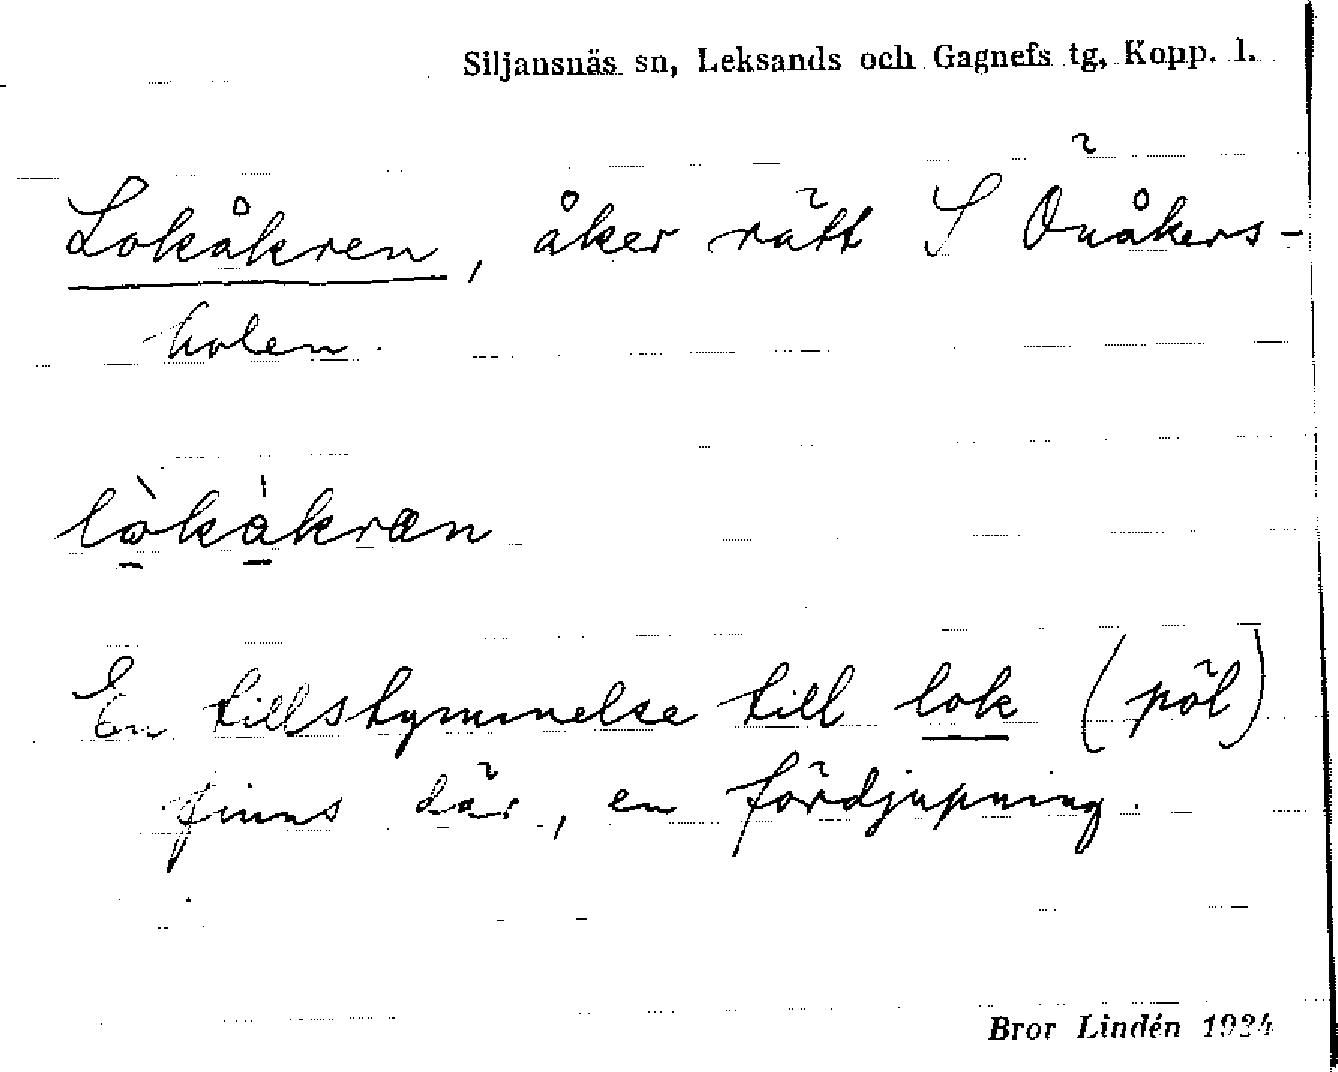 Siljansnäs sn, Leksands och Gagnefs tg, Kopp. l.
Lokåkren, åker rätt S Önåkers-
holen.
lòkàkrän
En tillstymmelse till lok (pöl)
finns där, en fördjupning.
Bror Lindén 1924